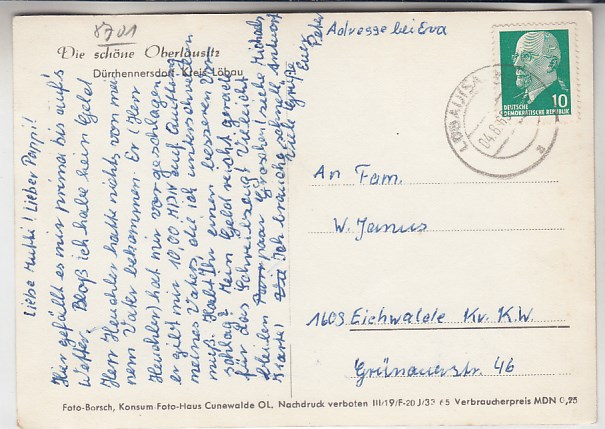 8701
Die schöne Oberlausitz
Dürrhennersdorf - Kreis Löbau
Liebe Mutti! Lieber Pappi!
Hier gefällt es mir prima bis auf's
Wetter. Bloß ich habe kein Geld
Herr Heuchler hatte nichts von mei-
nem Vater bekommen. Er (Herr
Heuchler) hat mir vorgeschlagen
er gibt mir 10,00 MDN auf Quittung
meines Vaters, die ich unterschreiben
muß. Habt Ihr einen besseren Vor-
schlag? Mein Geld reicht gerade
für das Schreibzeug! Vielleicht
bleiben paar Groschen! (siehe Michaels
Karte) Ich brauche schnell Antwort
Viele Grüße
Euer
Peter
Adresse bei Eva
DEUTSCHE
DEMOKRATISCHE REPUBLIK
10
LÖBAU (SA
04.8.
a
An Fam.
W. Janus
1603 Eichwalde Kr. KW.
Grünauerstr. 46
Foto-Borsch, Konsum-Foto-Haus Cunewalde OL. Nachdruck verboten III/19/F-20 J/39 65 Verbraucherpreis MDN 0,25